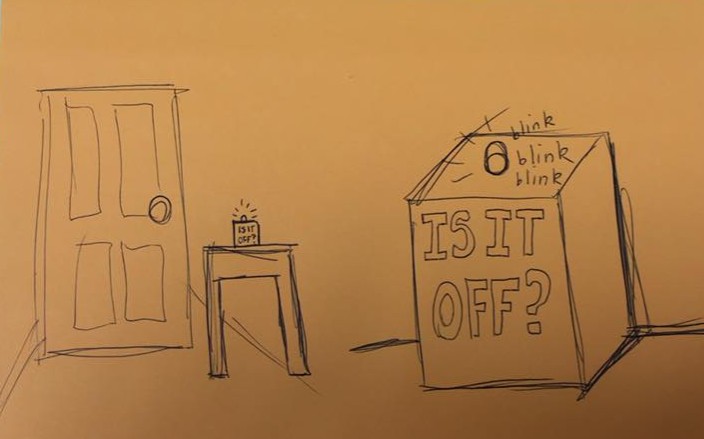 IS IT
OFF?
blink
blink
blink
IS IT
OFF?